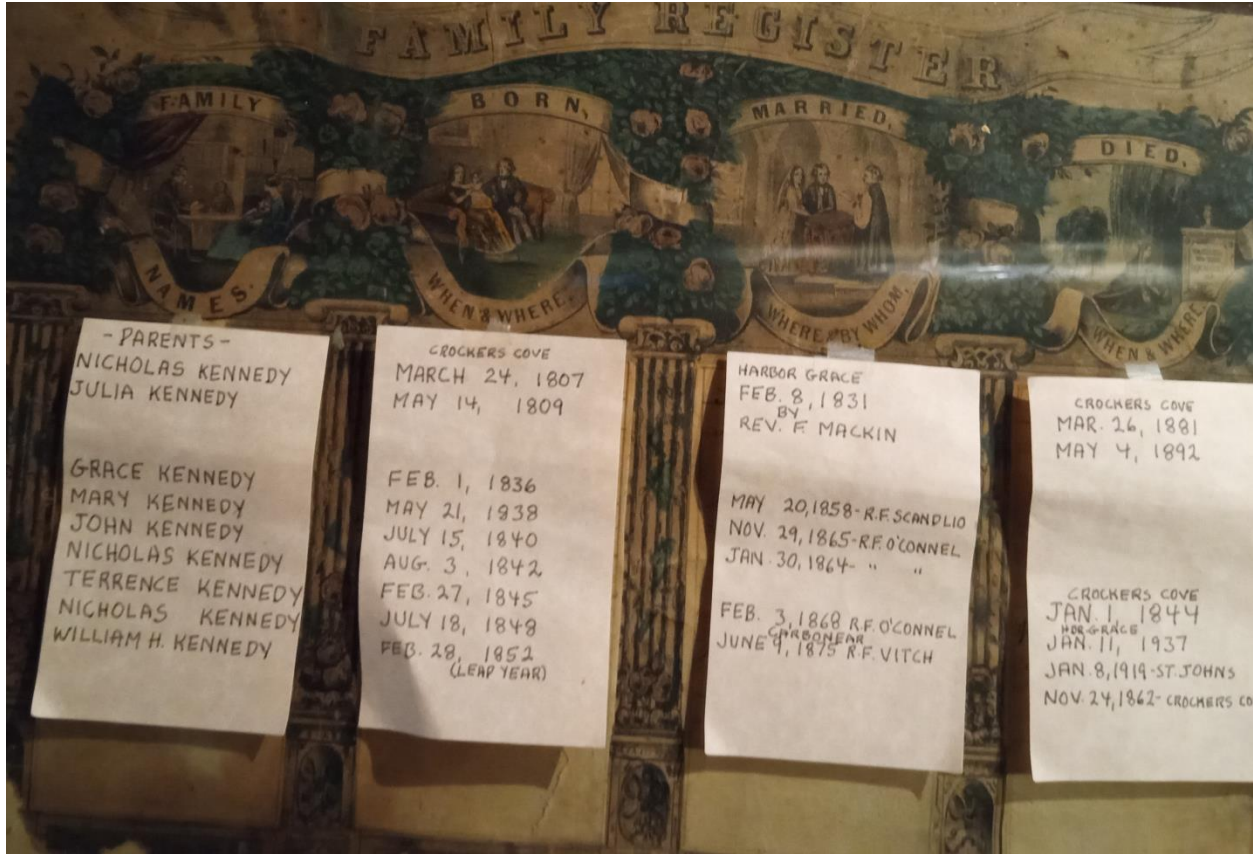 FAMILY REGISTER
FAMILY
NAMES.
BORN,
WHEN & WHERE.
MARRIED,
WHERE & BY WHOM,
DIED,
WHEN & WHERE.
- PARENTS -
NICHOLAS KENNEDY
JULIA KENNEDY
GRACE KENNEDY
MARY KENNEDY
JOHN KENNEDY
NICHOLAS KENNEDY
TERRENCE KENNEDY
NICHOLAS KENNEDY
WILLIAM H. KENNEDY
CROCKERS COVE
MARCH 24, 1807
MAY 14, 1809
FEB. 1, 1836
MAY 21, 1838
JULY 15, 1840
AUG. 3, 1842
FEB. 27, 1845
JULY 18, 1848
FEB. 28, 1852
(LEAP YEAR)
HARBOR GRACE
FEB. 8, 1831
BY
REV. F. MACKIN
MAY 20, 1858-R.F. SCANDLIO
NOV. 29, 1865-R.F. O'CONNEL
JAN. 30, 1864- " "
FEB. 3, 1868 R.F. O'CONNEL
CARBONEAR
JUNE 9, 1875 R.F. VITCH
CROCKERS COVE
MAR. 26, 1881
MAY 4, 1892
CROCKERS COVE
JAN. 1, 1844
HBR-GRACE
JAN. 11, 1937
JAN. 8, 1919-ST. JOHNS
NOV. 24, 1862-CROCKERS CO